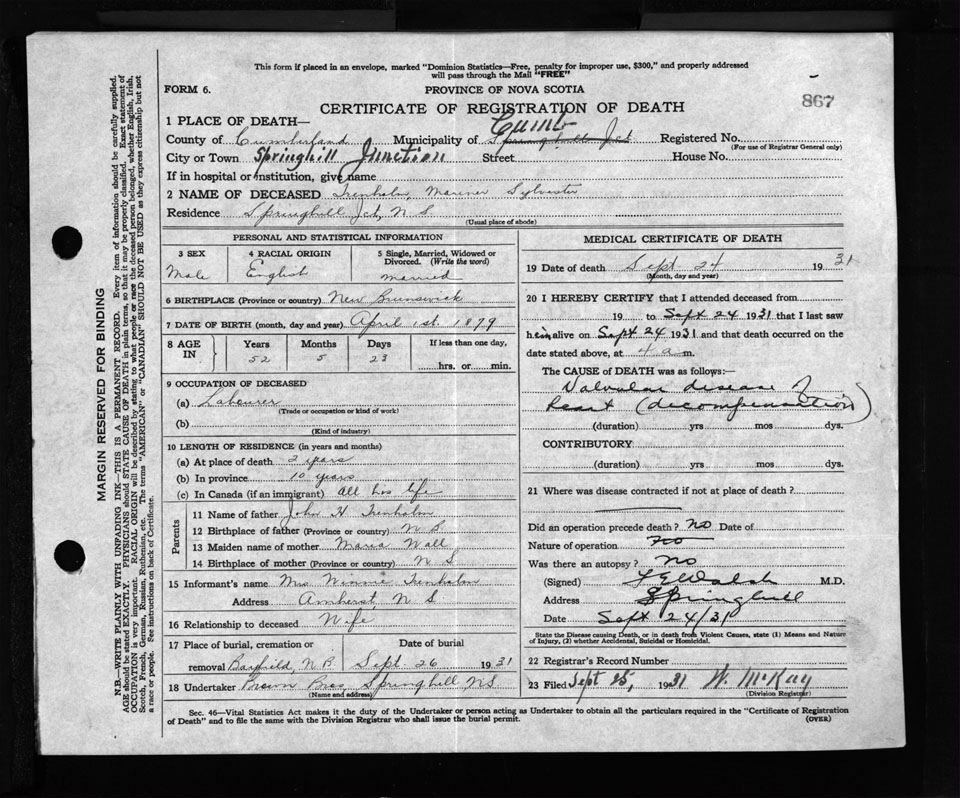 This form if placed in an envelope, marked "Dominion Statistics—Free, penalty for improper use, $300," and properly addressed
will pass through the Mail "FREE"
FORM 6.
PROVINCE OF NOVA SCOTIA
867
CERTIFICATE OF REGISTRATION OF DEATH
1 PLACE OF DEATH—
Cumb
County of Cumberland Municipality of Springhill Jct Registered No.
(For use of Registrar General only)
City or Town Springhill Junction Street House No.
If in hospital or institution, give name
2 NAME OF DECEASED Trenholm, Mariner Sylvester
Residence Springhill Jct, N S
(Usual place of abode)
PERSONAL AND STATISTICAL INFORMATION
3 SEX 4 RACIAL ORIGIN 5 Single, Married, Widowed or
Divorced. (Write the word)
Male English married
6 BIRTHPLACE (Province or country) New Brunswick
7 DATE OF BIRTH (month, day and year) April 1st. 1879
8 AGE IN Years Months Days If less than one day,
52 5 23 hrs. or min.
9 OCCUPATION OF DECEASED
(a) Labourer
(Trade or occupation or kind of work)
(b)
(Kind of industry)
10 LENGTH OF RESIDENCE (in years and months)
(a) At place of death 2 years
(b) In province 10 years
(c) In Canada (if an immigrant) all his life
Parents
11 Name of father John H Trenholm
12 Birthplace of father (Province or country) N B
13 Maiden name of mother Maria Wall
14 Birthplace of mother (Province or country) N S
15 Informant's name Mrs Winnie Trenholm
Address Amherst N S
16 Relationship to deceased Wife
17 Place of burial, cremation or Date of burial
removal Bayfield, N.B. Sept. 26 1931
18 Undertaker Brown Bros Springhill NS
(Name and address)
MEDICAL CERTIFICATE OF DEATH
19 Date of death Sept 24 19 31
(Month, day and year)
20 I HEREBY CERTIFY that I attended deceased from
19 to Sept 24 1931 that I last saw
him alive on Sept 24 1931 and that death occurred on the
date stated above, at 4 a m.
The CAUSE of DEATH was as follows:—
Valvular disease of
heart (decompensation)
(duration) yrs mos dys.
CONTRIBUTORY
(duration) yrs mos dys.
21 Where was disease contracted if not at place of death?
Did an operation precede death? no Date of
Nature of operation no
Was there an autopsy? no
(Signed) Walsh M.D.
Address Springhill
Date Sept 24/31
State the Disease causing Death, or in death from Violent Causes, state (1) Means and Nature
of Injury, (2) whether Accidental, Suicidal or Homicidal.
22 Registrar's Record Number
23 Filed Sept 25, 1931 W. McKay
(Division Registrar)
Sec. 46—Vital Statistics Act makes it the duty of the Undertaker or person acting as Undertaker to obtain all the particulars required in the "Certificate of Registration
of Death" and to file the same with the Division Registrar who shall issue the burial permit.
(OVER)
MARGIN RESERVED FOR BINDING
N.B.—WRITE PLAINLY WITH UNFADING INK—THIS IS A PERMANENT RECORD. Every item of information should be carefully supplied.
AGE should be stated EXACTLY. PHYSICIANS should STATE CAUSE OF DEATH in plain terms, so that it may be properly classified. Exact statement of
OCCUPATION is very important. RACIAL ORIGIN will be described by stating to what people or race the deceased person belonged, whether English, Irish,
Scotch, French, German, Russian, Ruthenian, etc. The terms "AMERICAN" or "CANADIAN" SHOULD NOT BE USED as they express citizenship but not
a race or people. See instructions on back of Certificate.